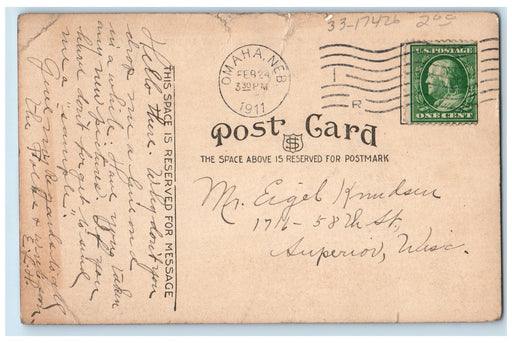 33-17426 200
OMAHA, NEB.
FEB 24
330 PM
1911
1
R
U.S. POSTAGE
ONE CENT
Post Card
THE SPACE ABOVE IS RESERVED FOR POSTMARK
THIS SPACE IS RESERVED FOR MESSAGE
Hello there. Why don't you
drop me a line once
in a while. Have you taken
any new pictures. If you
have don't forget to send
me a "sample".
Give my regards to all
the folks &
E.
Mr. Eigel Knudsen
1716-58th St,
Superior, Wisc.